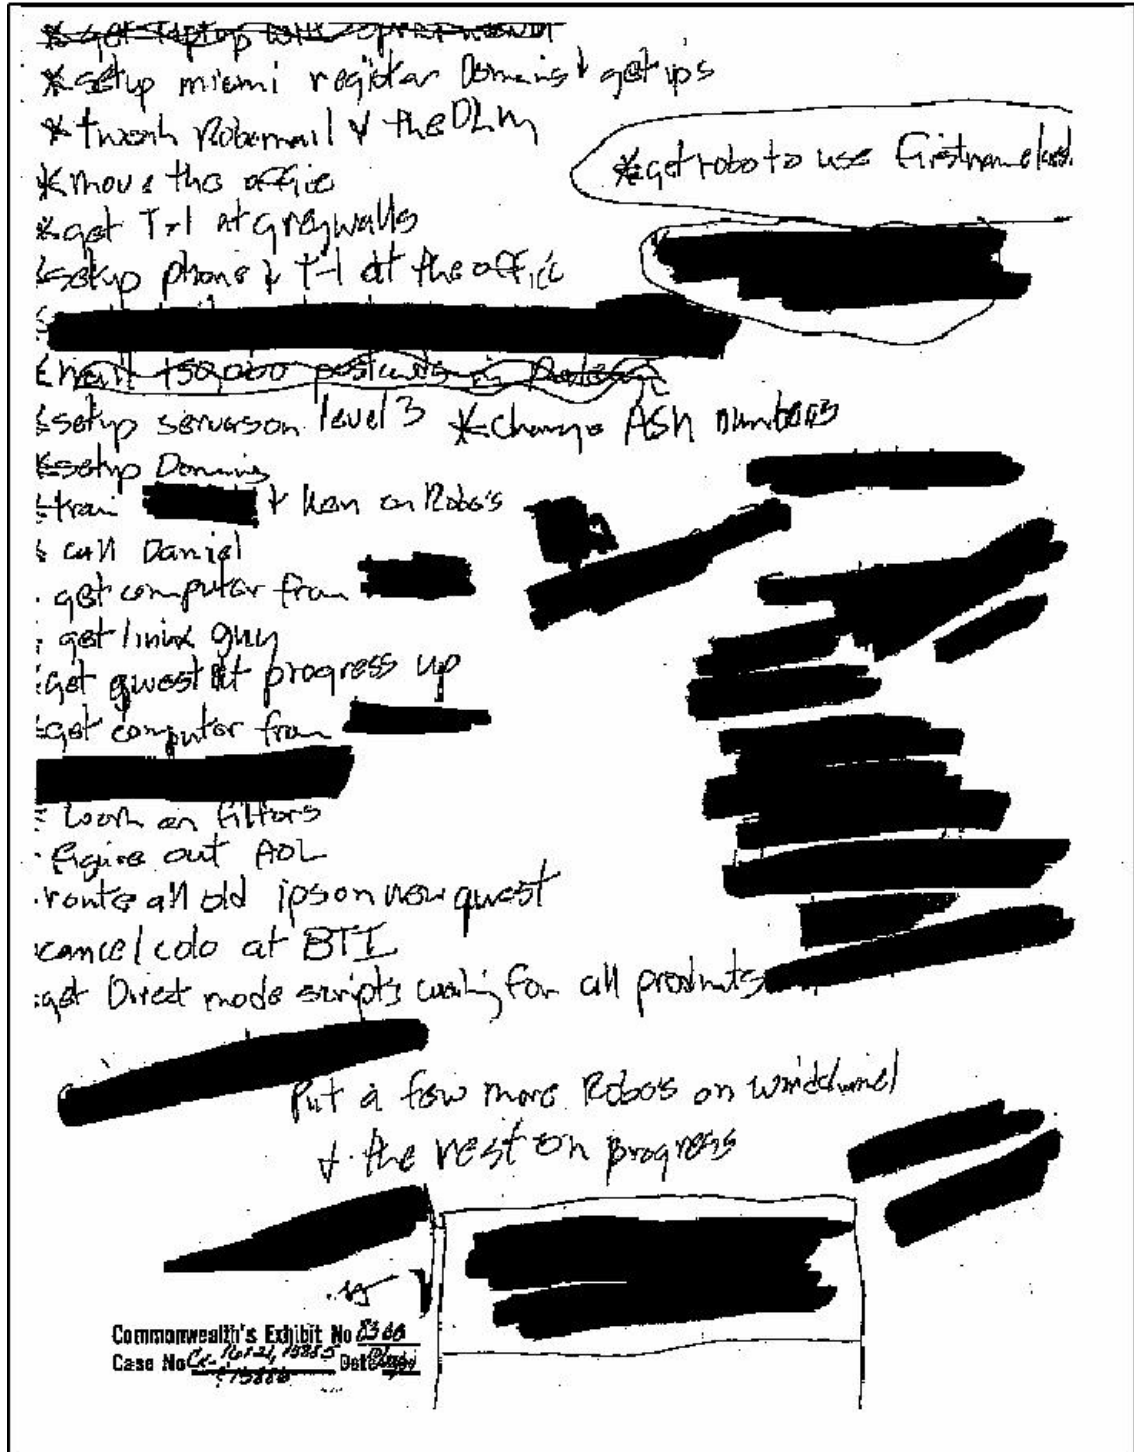 * get laptop with
* setup miami registar Domains & get ips
* tweak Robomail & the DLM
* get robo to use firstname last
* move the office
* get T-1 at greywalls
* setup phone & T-1 at the office
150,000 postcards in
* setup servers on level 3 * Change ASN numbers
* setup Domains
* train & Ken on Robo's
* call Daniel
· get computer from
· get linix guy
· get qwest at progress up
· get computer from
· work on filters
· figure out AOL
· route all old ips on new qwest
· cancel colo at BTI
· get Direct mode scripts working for all products
Put a few more Robo's on windchannel
& the rest on progress
Commonwealth's Exhibit No
Case No Date